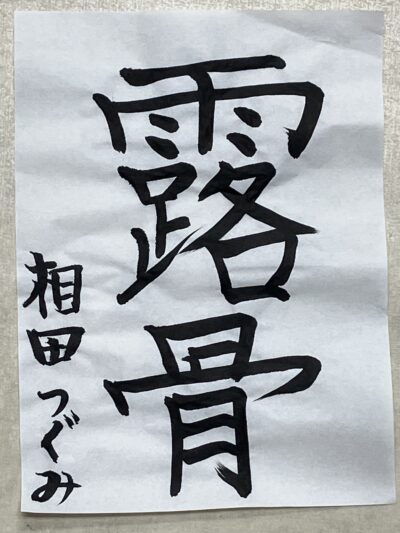 露骨
相田つぐみ